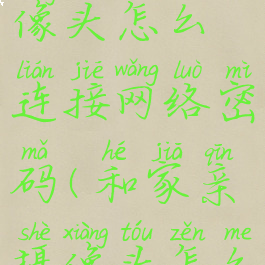 像头怎么
lián jiē wǎng luò mì
连接网络密
mǎ hé jiā qīn
码(和家亲
shè xiàng tóu zěn me
摄像头怎么